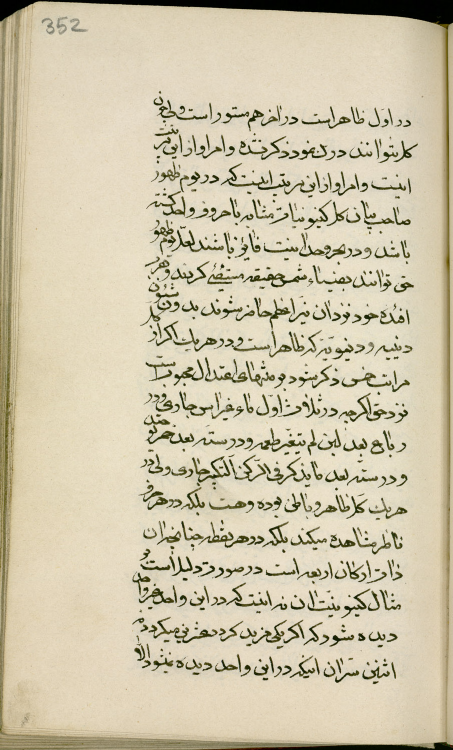 352
در اول ظاهر است در اخر هم مستور است ولی چون
کل نتوانند درک نمود ذکر نشده و امر او از این
اینست و امر او از این مرتبه اینست که در یوم ظهور
صاحب بیان کل کینونیات مشابه با حروف واحد گشته
باشد و در بحر وحدانیت فایز باشند لعل یوم ظهور
حق توانند بضیاء شمس حقیقه مستضیئ گردید و هر
افئده خود نزد ان نیر اعظم حاضر شوند بدون شئون
دینیه و دنیویه که ظاهر است و در هر یک اگر از
مراتب خمس ذکر شود بر منتهای اعتدال محبوب است
نزد حق اگر چه در ثلاث اول ماء غیر اسن جاری و در
رباع بعد لبن لم یتغیر طعمه و در سته بعد خمر
و در سته بعد ما یذکر فی الرکن التکبیر جاری ولی در
هر یک کل ظاهر و باطن بوده و هست بلکه در هر حرف
ناظر مشاهده میکند بلکه در هر نقطه چنانچه ان
ذات ارکان اربعه است در صورت دلیل است و
مثال کینونیت ان نه اینست که در این واحد غیر واحد
دیده شود که اگر یکی مزید کردد عشرین میکردد نه
اثنین سر ان اینکه در این واحد دیده نمیشود الا